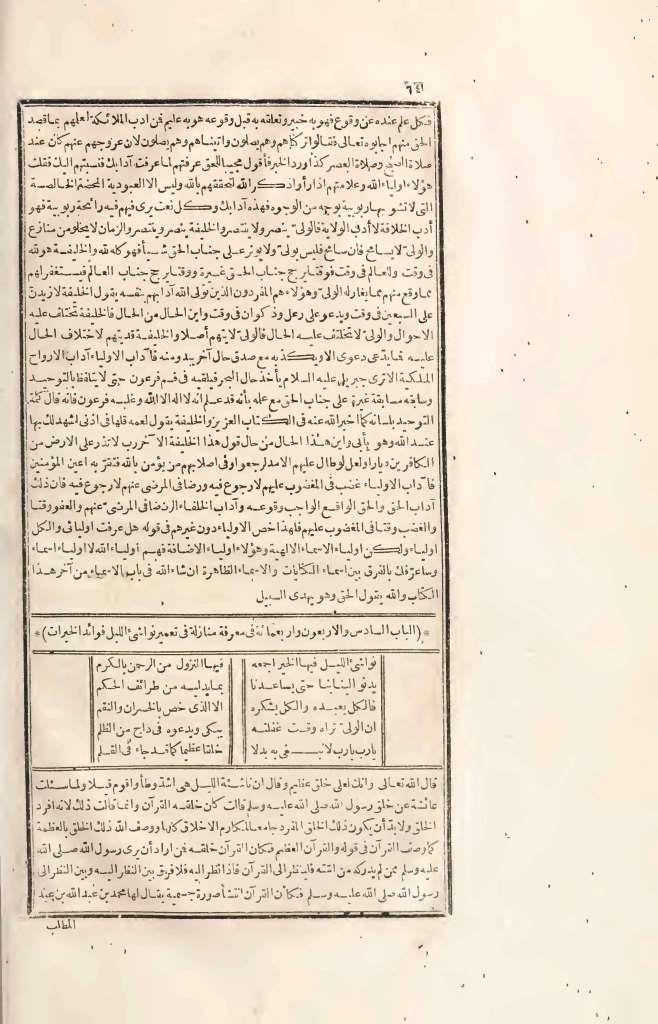 ٦٤
فكل علم عنده عن وقوع فهو به خبير وتعلقه به قبل وقوعه هو به عليم فمن ادب الملائكة لعلهم بما قصد
الحق منهم اجابوه تعالى فقالوا تركناهم وهم يصلون واتيناهم وهم يصلون لان عروجهم عنهم كان عند
صلاة الصبح وصلاة العصر كذا ورد الخبر فأقول مجيبا للحق عرفتهم لما عرفت آدابك فنسبتهم اليك فقلت
هؤلاء اولياء الله وعلامتهم اذا رأوا ذكر الله لتحققهم بالله وليس الا العبودية المحضة الخالصة
التى لا تشوبها ربوبية بوجه من الوجوه فهذه آدابك وكل نعت يرى فيهم فيه رائحة ربوبية فهو
أدب الخلافة لا أدب الولاية فالولى ينصر ولا ينتصر والخليفة ينصر وينتصر والزمان لا يخلو من منازع
والولى لا يسامح فان سامح فليس بولى ولا يوثر على جناب الحق شيأ فهو كله لله والخليفة هو لله
فى وقت وللعالم فى وقت فوقتا يرجح جناب الحق غيرة ووقتا يرجح جناب العالم فيستغفر لهم
مما وقع منهم مما يغار له الولى وهؤلاء هم المفردون الذين تولى الله آدابهم بنفسه يقول الخليفة لازيدن
على السبعين فى وقت ويدعو على رعل وذكوان فى وقت واين الحال من الحال فالخليفة تختلف عليه
الاحوال والولى لا يختلف عليه الحال فالولى لا يتهم أصلا والخليفة قد يتهم لاختلاف الحال
عليه فما يدعى دعوى الا ويكذبه مع صدق حال آخر يبدو منه فآداب الاولياء آداب الارواح
الملكية الا ترى جبريل عليه السلام يأخذ حال البحر فيلقيه فى فم فرعون حتى لا يتلفظ بالتوحيد
وسابقه مسابقة غيرة على جناب الحق مع علمه بأنه قد علم انه لا اله الا الله وغلبه فرعون فانه قال كلمة
التوحيد بلسانه كما اخبر الله عنه فى الكتاب العزيز والخليفة يقول لعمه قلها فى اذنى اشهد لك بها
عند الله وهو يأبى واين هذا الحال من حال قول هذا الخليفة الآخر رب لا تذر على الارض من
الكافرين ديارا ولعل لو طال عليهم الامد لرجعوا وفى اصلابهم من يؤمن بالله فتقر به اعين المؤمنين
فآداب الاولياء غضب فى المغضوب عليهم لا رجوع فيه ورضا فى المرضى عنهم لا رجوع فيه فان ذلك
آداب الحق والحق الواقع الواجب وقوعه وآداب الخلفاء الرضا فى المرضى عنهم والعفو وقتا
والغضب وقتا فى المغضوب عليهم فلهذا خص الاولياء دون غيرهم فى قوله هل عرفت اوليائى والكل
اولياء ولكن اولياء الاسماء الالهية وهؤلاء اولياء الاضافة فهم أولياء الله لا اولياء اسماء
وسأعرفك بالفرق بين اسماء الكنايات والاسماء الظاهرة ان شاء الله فى باب الاسماء من آخر هذا
الكتاب والله يقول الحق وهو يهدى السبيل
* (الباب السادس والاربعون واربعمائة فى معرفة منازلة فى تعمير نواشئ الليل فوائد الخيرات) *
نواشئ الليل فيها الخير اجمعه فيها النزول من الرحمن بالكرم
يدنو الينا بنا حتى يساعدنا بما يدليه من طرائف الحكم
فالكل يعبده والكل يشكره الا الذى خص بالخسران والنقم
ان الولى تراه وقت غفلته يبكى ويدعوه فى داج من الظلم
يارب يارب لا يبغى به بدلا خلقا عظيما كما قد جاء فى القلم
قال الله تعالى وانك لعلى خلق عظيم وقال ان ناشئة الليل هى اشد وطأ واقوم قيلا ولما سئلت
عائشة عن خلق رسول الله صلى الله عليه وسلم قالت كان خلقه القرآن وانما قالت ذلك لانه افرد
الخلق ولا بد أن يكون ذلك الخلق المفرد جامعا لمكارم الاخلاق كلها ووصف الله ذلك الخلق بالعظمة
كما وصف القرآن فى قوله والقرآن العظيم فكان القرآن خلقه فمن اراد أن يرى رسول الله صلى الله
عليه وسلم ممن لم يدركه من امته فلينظر الى القرآن فاذا نظر اليه فلا فرق بين النظر اليه وبين النظر الى
رسول الله صلى الله عليه وسلم فكأن القرآن انتشأ صورة جسمية يقال لها محمد بن عبد الله بن عبد
المطلب